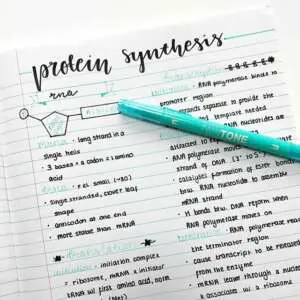 protein synthesis
rna
mRNA • long strand in a
single helix
• 3 bases = a codon = 1 amino
acid
tRNA • small (~80)
• single stranded, clover leaf
shape
• anticodon at one end
• more stable than mRNA
translation
initiation • initiation complex
= ribosome, mRNA & initiator
tRNA w/ first amino acid,
transcription
• RNA polymerase binds to
promoter region
strands separate to provide the
template needed
RNA nucleotides are
attracted to
• RNA polymerase moves along
strand of DNA (3' to 5')
catalyses formation of ester bonds
btw. RNA nucleotides to assemble
mRNA
• H bonds btw. DNA reform when
RNA polymerase moves on
the terminator region
cause transcripts to be released
from the enzyme
• mRNA moves through a nuclear
associates w/ a ribosome
TONE